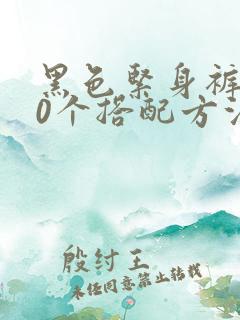 黑色紧身裤
0个搭配方法
殷纣王
未经同意禁止转载